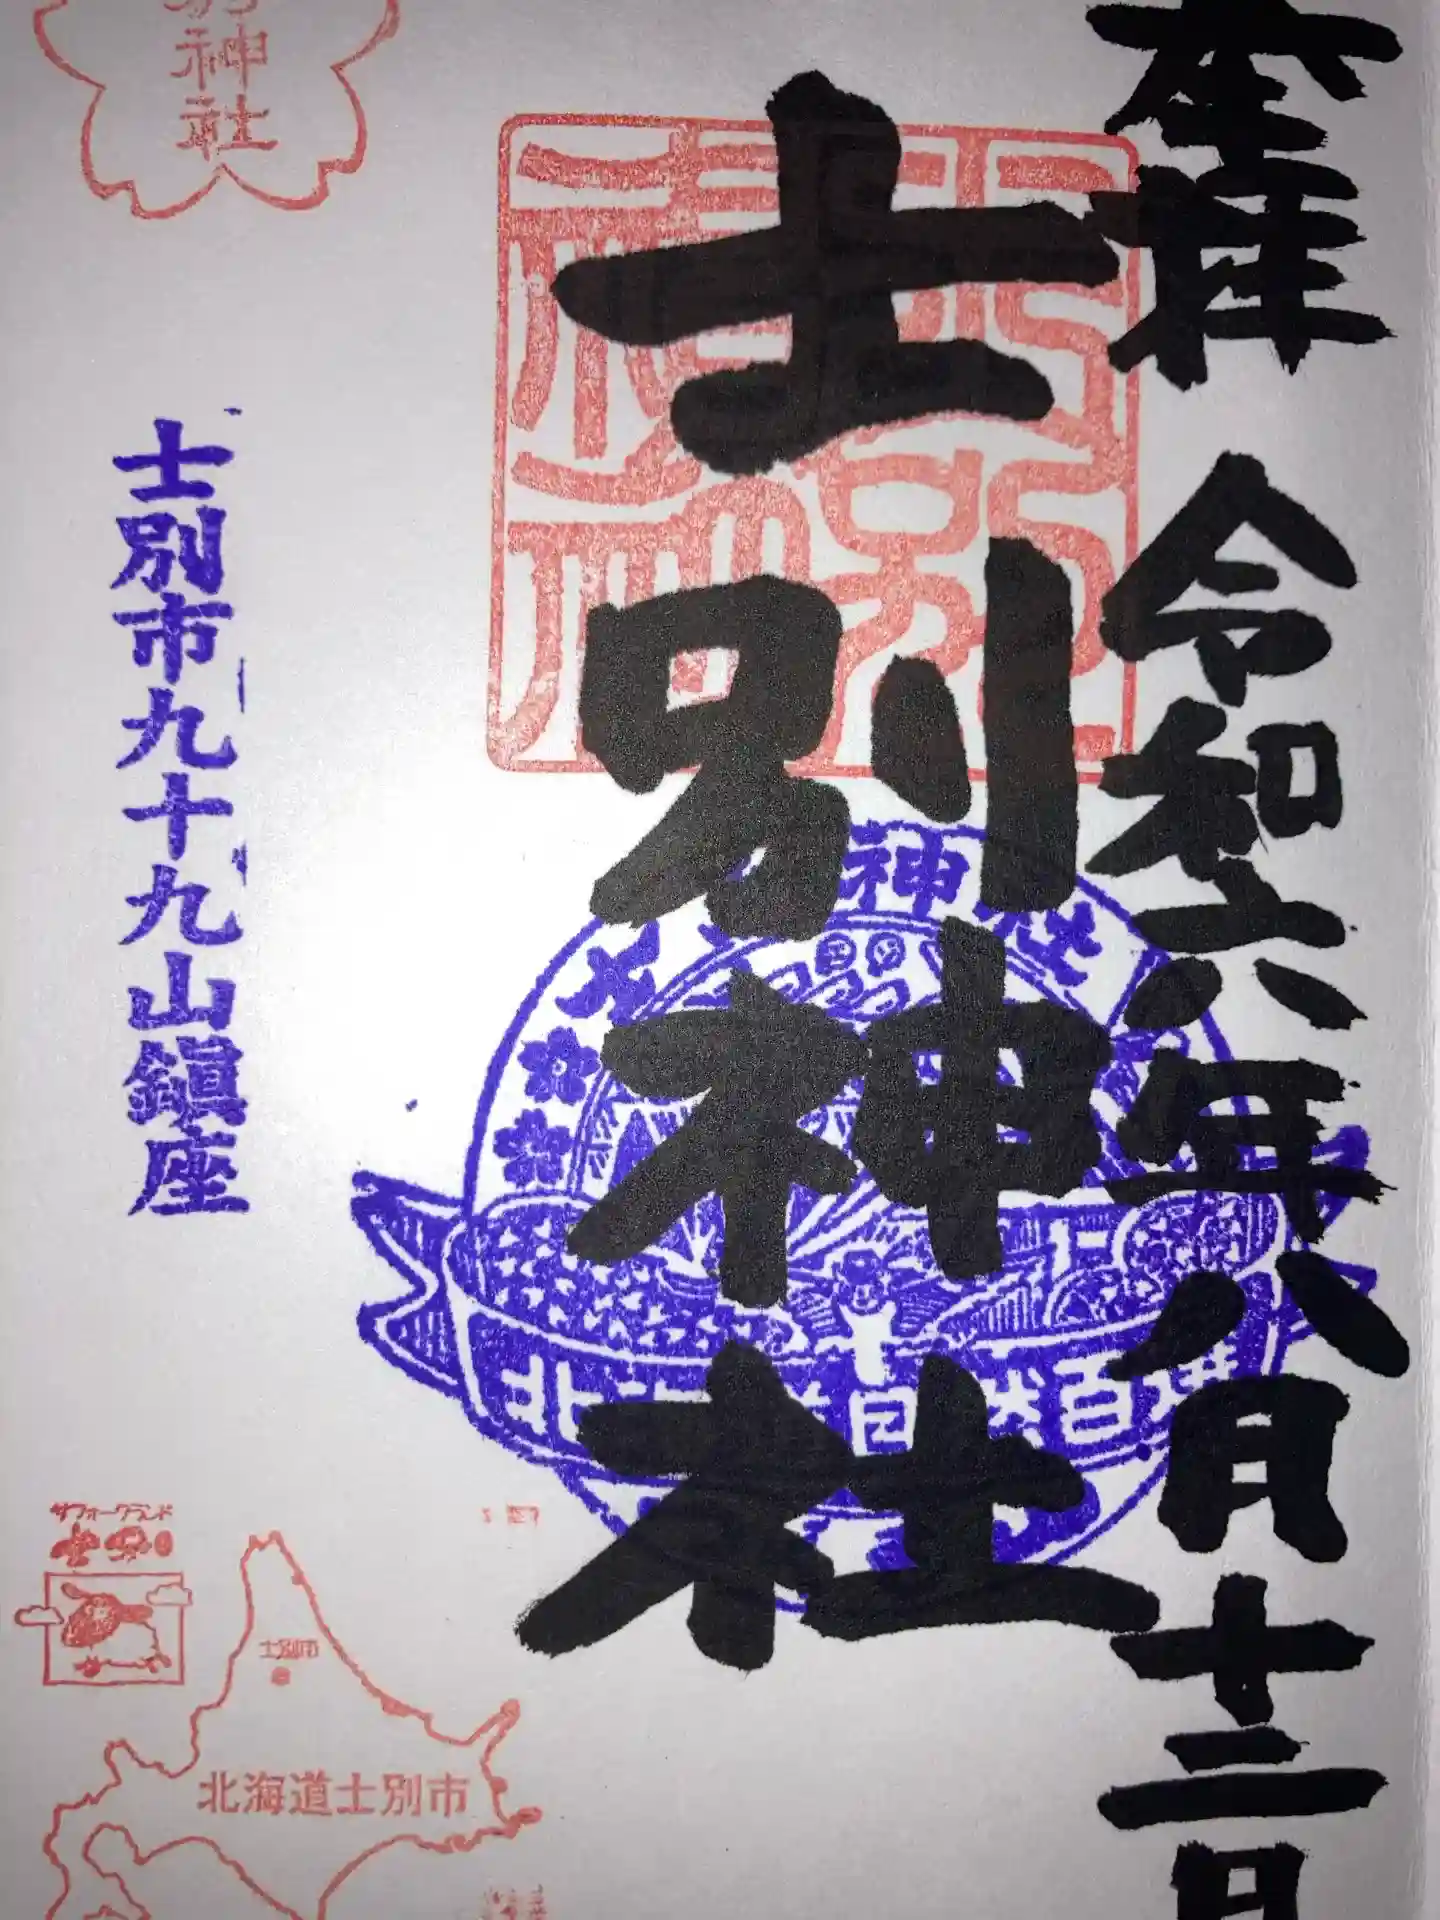 奉拝 令和六年八月十二日
士別神社
神社
神社
北海道自然百選
士別市九十九山鎮座
サフォークランド
士別市
北海道士別市